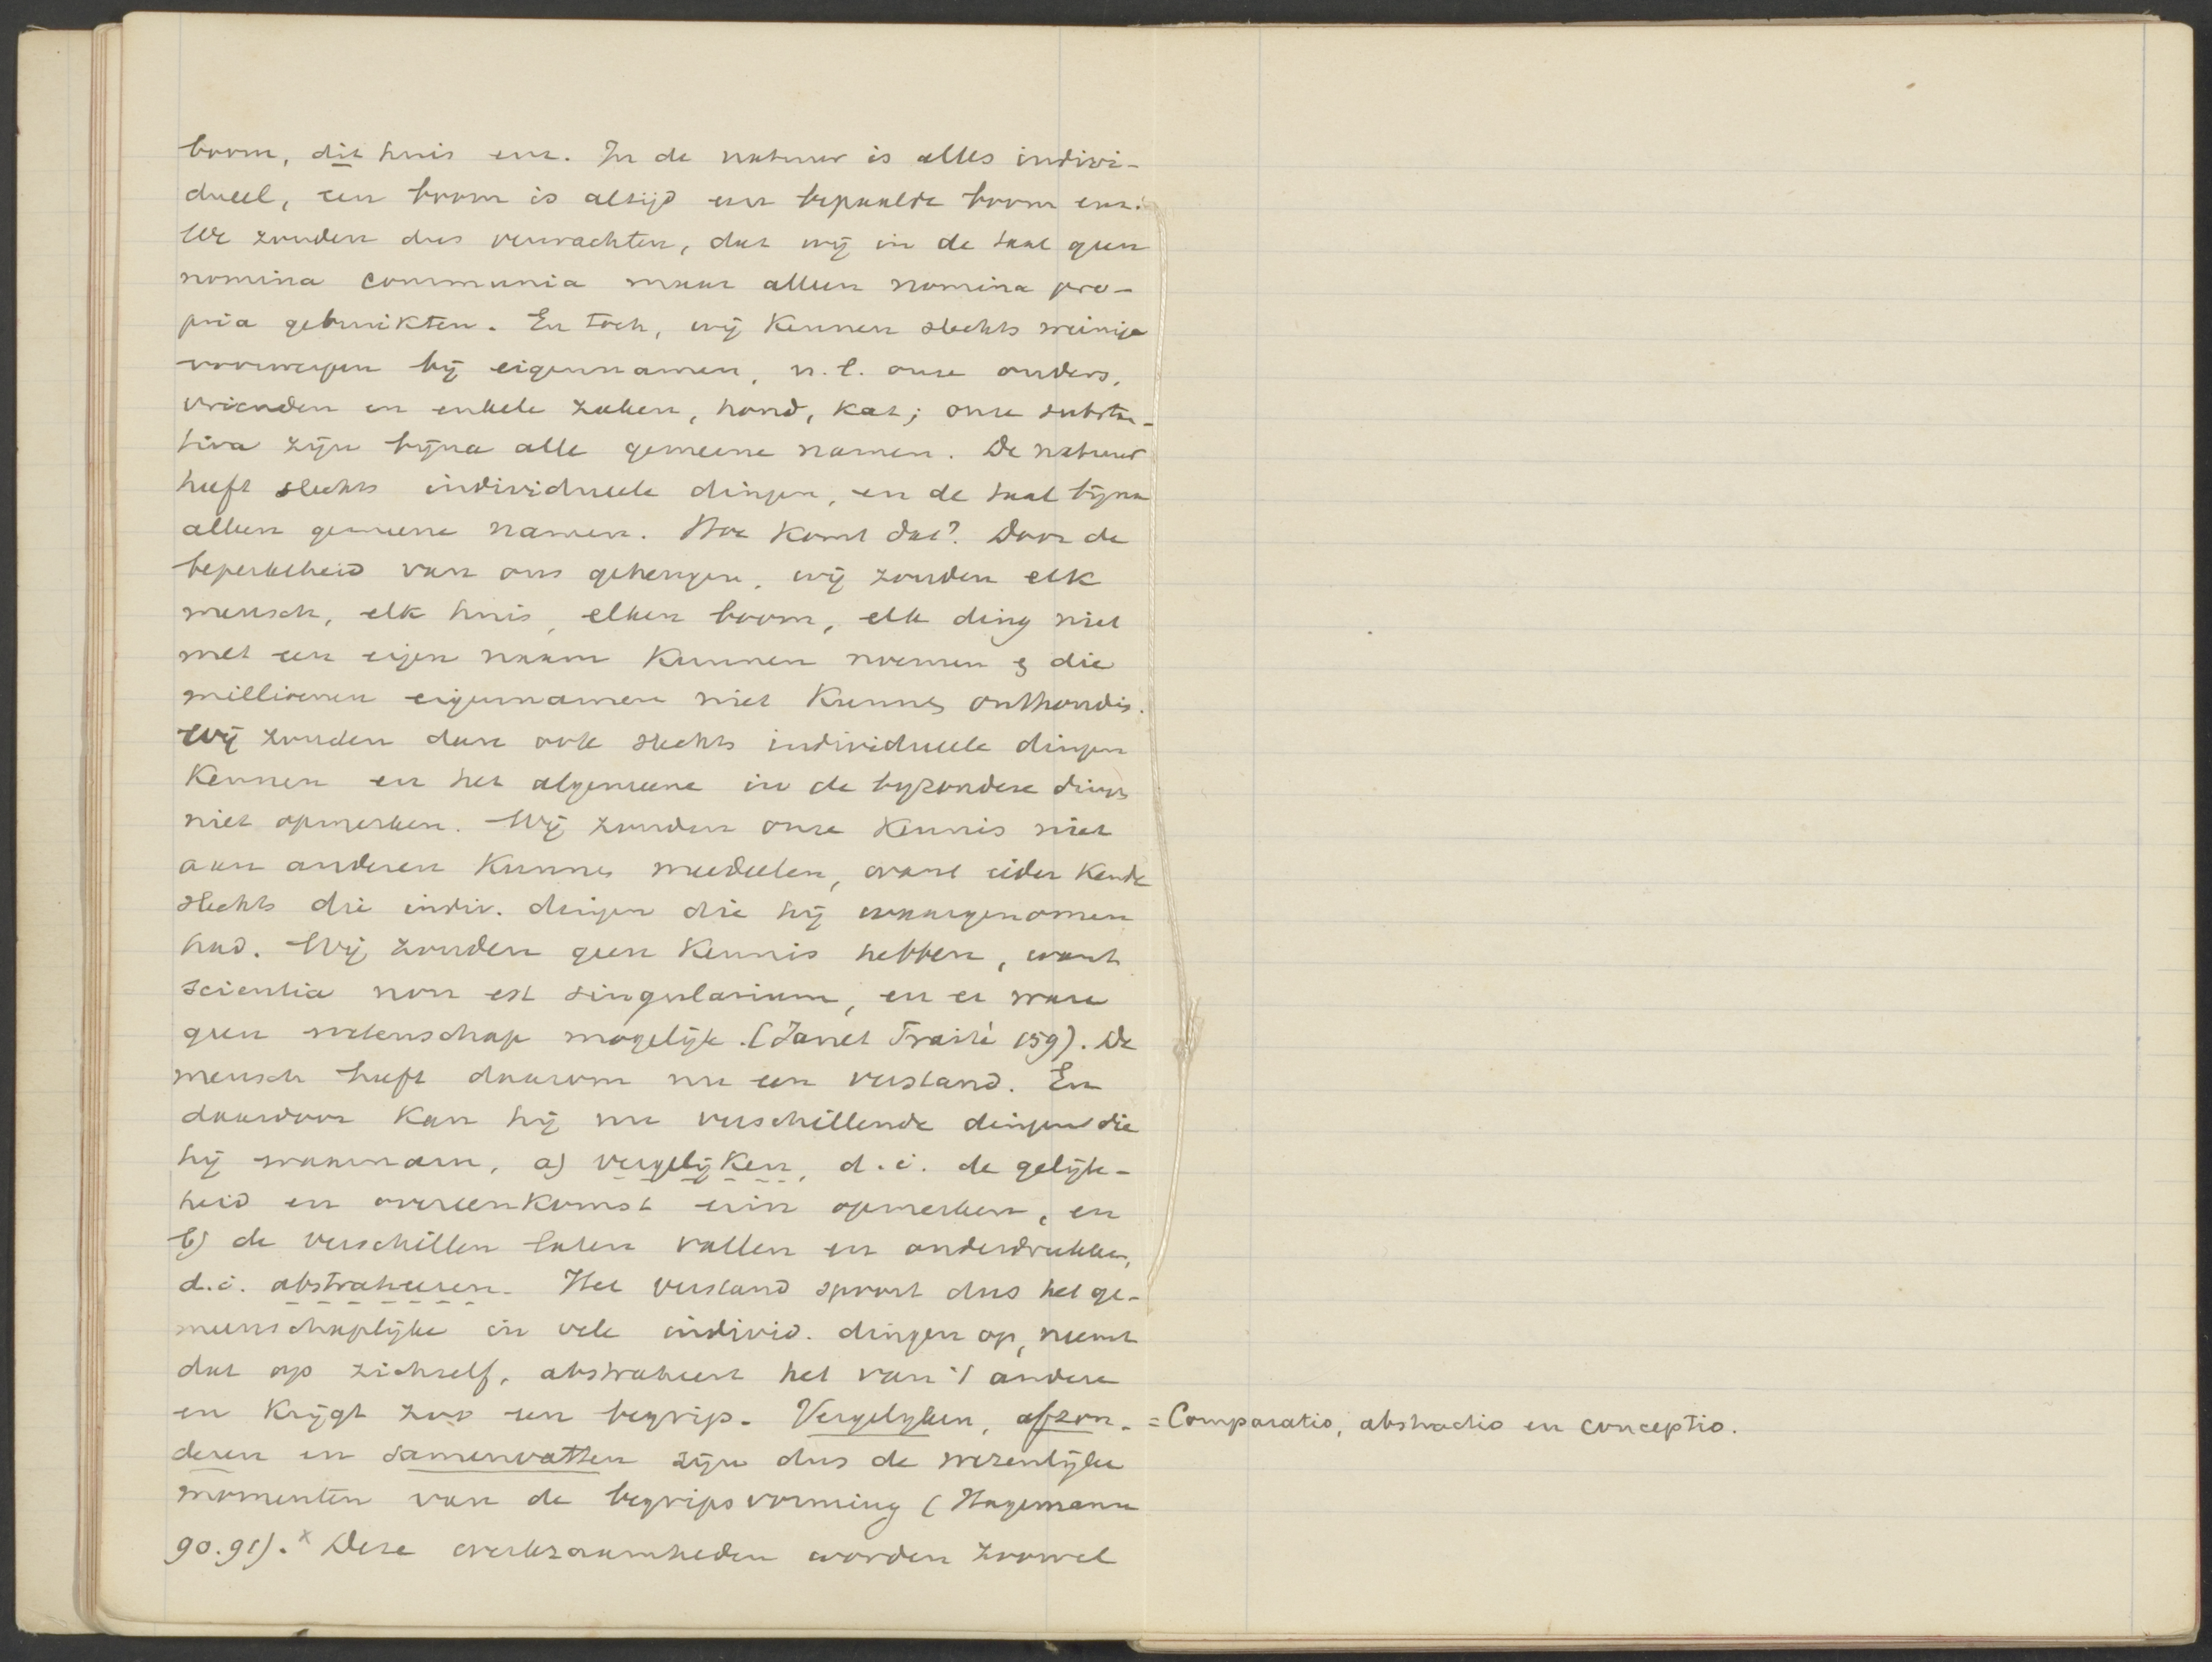 boom, dit huis enz. In de natuur is alles indivi-
dueel, een boom is altijd een bepaalde boom enz.
We zouden dus verwachten, dat wij in de taal geen
nomina communia maar alleen nomina pro-
pria gebruikten. En toch, wij kennen slechts weinige
voorwerpen bij eigennamen, n.l. onze ouders,
vrienden en enkele zaken, hond, kat; onze substan-
tiva zijn bijna alle gemeene namen. De natuur
heeft slechts individueele dingen, en de taal bijna
alleen gemeene namen. Hoe komt dat? Door de
beperktheid van ons geheugen, wij zouden elk
mensch, elk huis, elken boom, elk ding niet
met een eigen naam kunnen noemen & die
millioenen eigennamen niet kunnen onthouden.
Wij zouden dan ook slechts individueele dingen
kennen en het algemeene in de byzondere dingen
niet opmerken. Wij zouden onze kennis niet
aan anderen kunnen meedeelen, want ieder kende
slechts die indiv. dingen die hij waargenomen
had. Wij zouden geen kennis hebben, want
scientia non est singularium, en er ware
geen wetenschap mogelijk. (Janet Traité 159). De
mensch heeft daarom nu een verstand. En
daardoor kan hij nu verschillende dingen die
hij waarnam, a) vergelijken, d.i. de gelijk-
heid en overeenkomst erin opmerken, en
b) de verschillen laten vallen en onderdrukken,
d.i. abstraheeren. Het verstand spoort dus het ge-
meenschaplijke in vele individ. dingen op, neemt
dat op zichzelf, abstraheert het van 't andere
en krijgt zoo een begrip. Vergelyken, afzon- = Comparatio, abstractio en conceptio.
deren en samenvatten zijn dus de wezenlijke
momenten van de begripsvorming (Hagemann
90.91).x Deze werkzaamheden worden zoowel